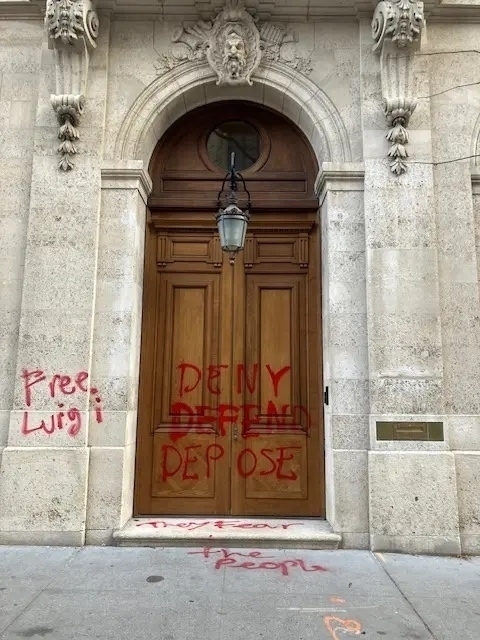 Free
Luigi
DENY
DEFEND
DEPOSE
They Fear
the
People